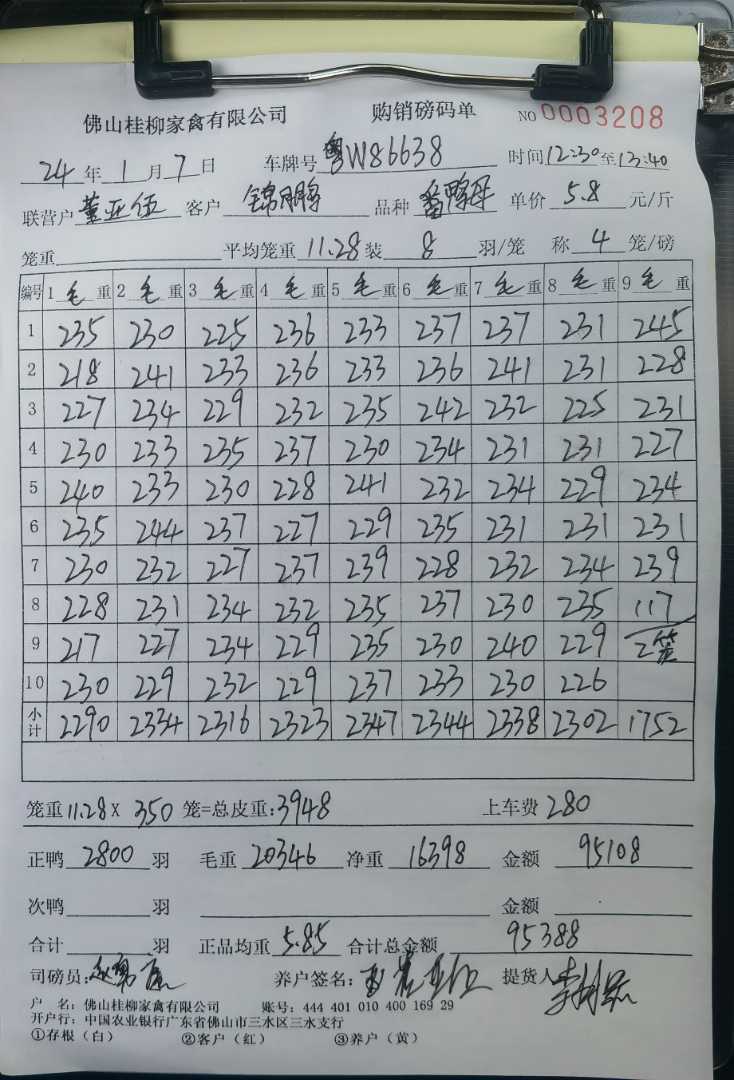 佛山桂柳家禽有限公司 购销磅码单 NO 0003208
24年1月7日 车牌号 粤W86638 时间12:30至13:40
联营户 董亚伍 客户 锦鹏 品种 番鸭 单价 5.8 元/斤
笼重 平均笼重 11.28 装 8 羽/笼 称 4 笼/磅
编号 1 毛 重 2 毛 重 3 毛 重 4 毛 重 5 毛 重 6 毛 重 7 毛 重 8 毛 重 9 毛 重
1 235 230 225 236 233 237 237 231 245
2 218 241 233 236 233 236 241 231 228
3 227 234 229 232 235 242 232 225 231
4 230 233 235 237 230 234 231 231 227
5 240 233 230 228 241 232 234 229 234
6 235 244 237 227 229 235 231 231 231
7 230 232 227 237 239 228 232 234 239
8 228 231 234 232 235 237 230 235 117
9 217 227 234 229 235 230 240 229 2笼
10 230 229 232 229 237 233 230 226
小计 2290 2334 2316 2323 2347 2344 2338 2302 1752
笼重 11.28 X 350 笼=总皮重:3948 上车费 280
正鸭 2800 羽 毛重 20346 净重 16398 金额 95108
次鸭 羽 金额
合计 羽 正品均重 5.85 合计总金额 95388
司磅员: 养户签名: 董亚伍 提货人
户 名:佛山桂柳家禽有限公司 账号:444 401 010 400 169 29
开户行:中国农业银行广东省佛山市三水区三水支行
①存根(白) ②客户(红) ③养户(黄)